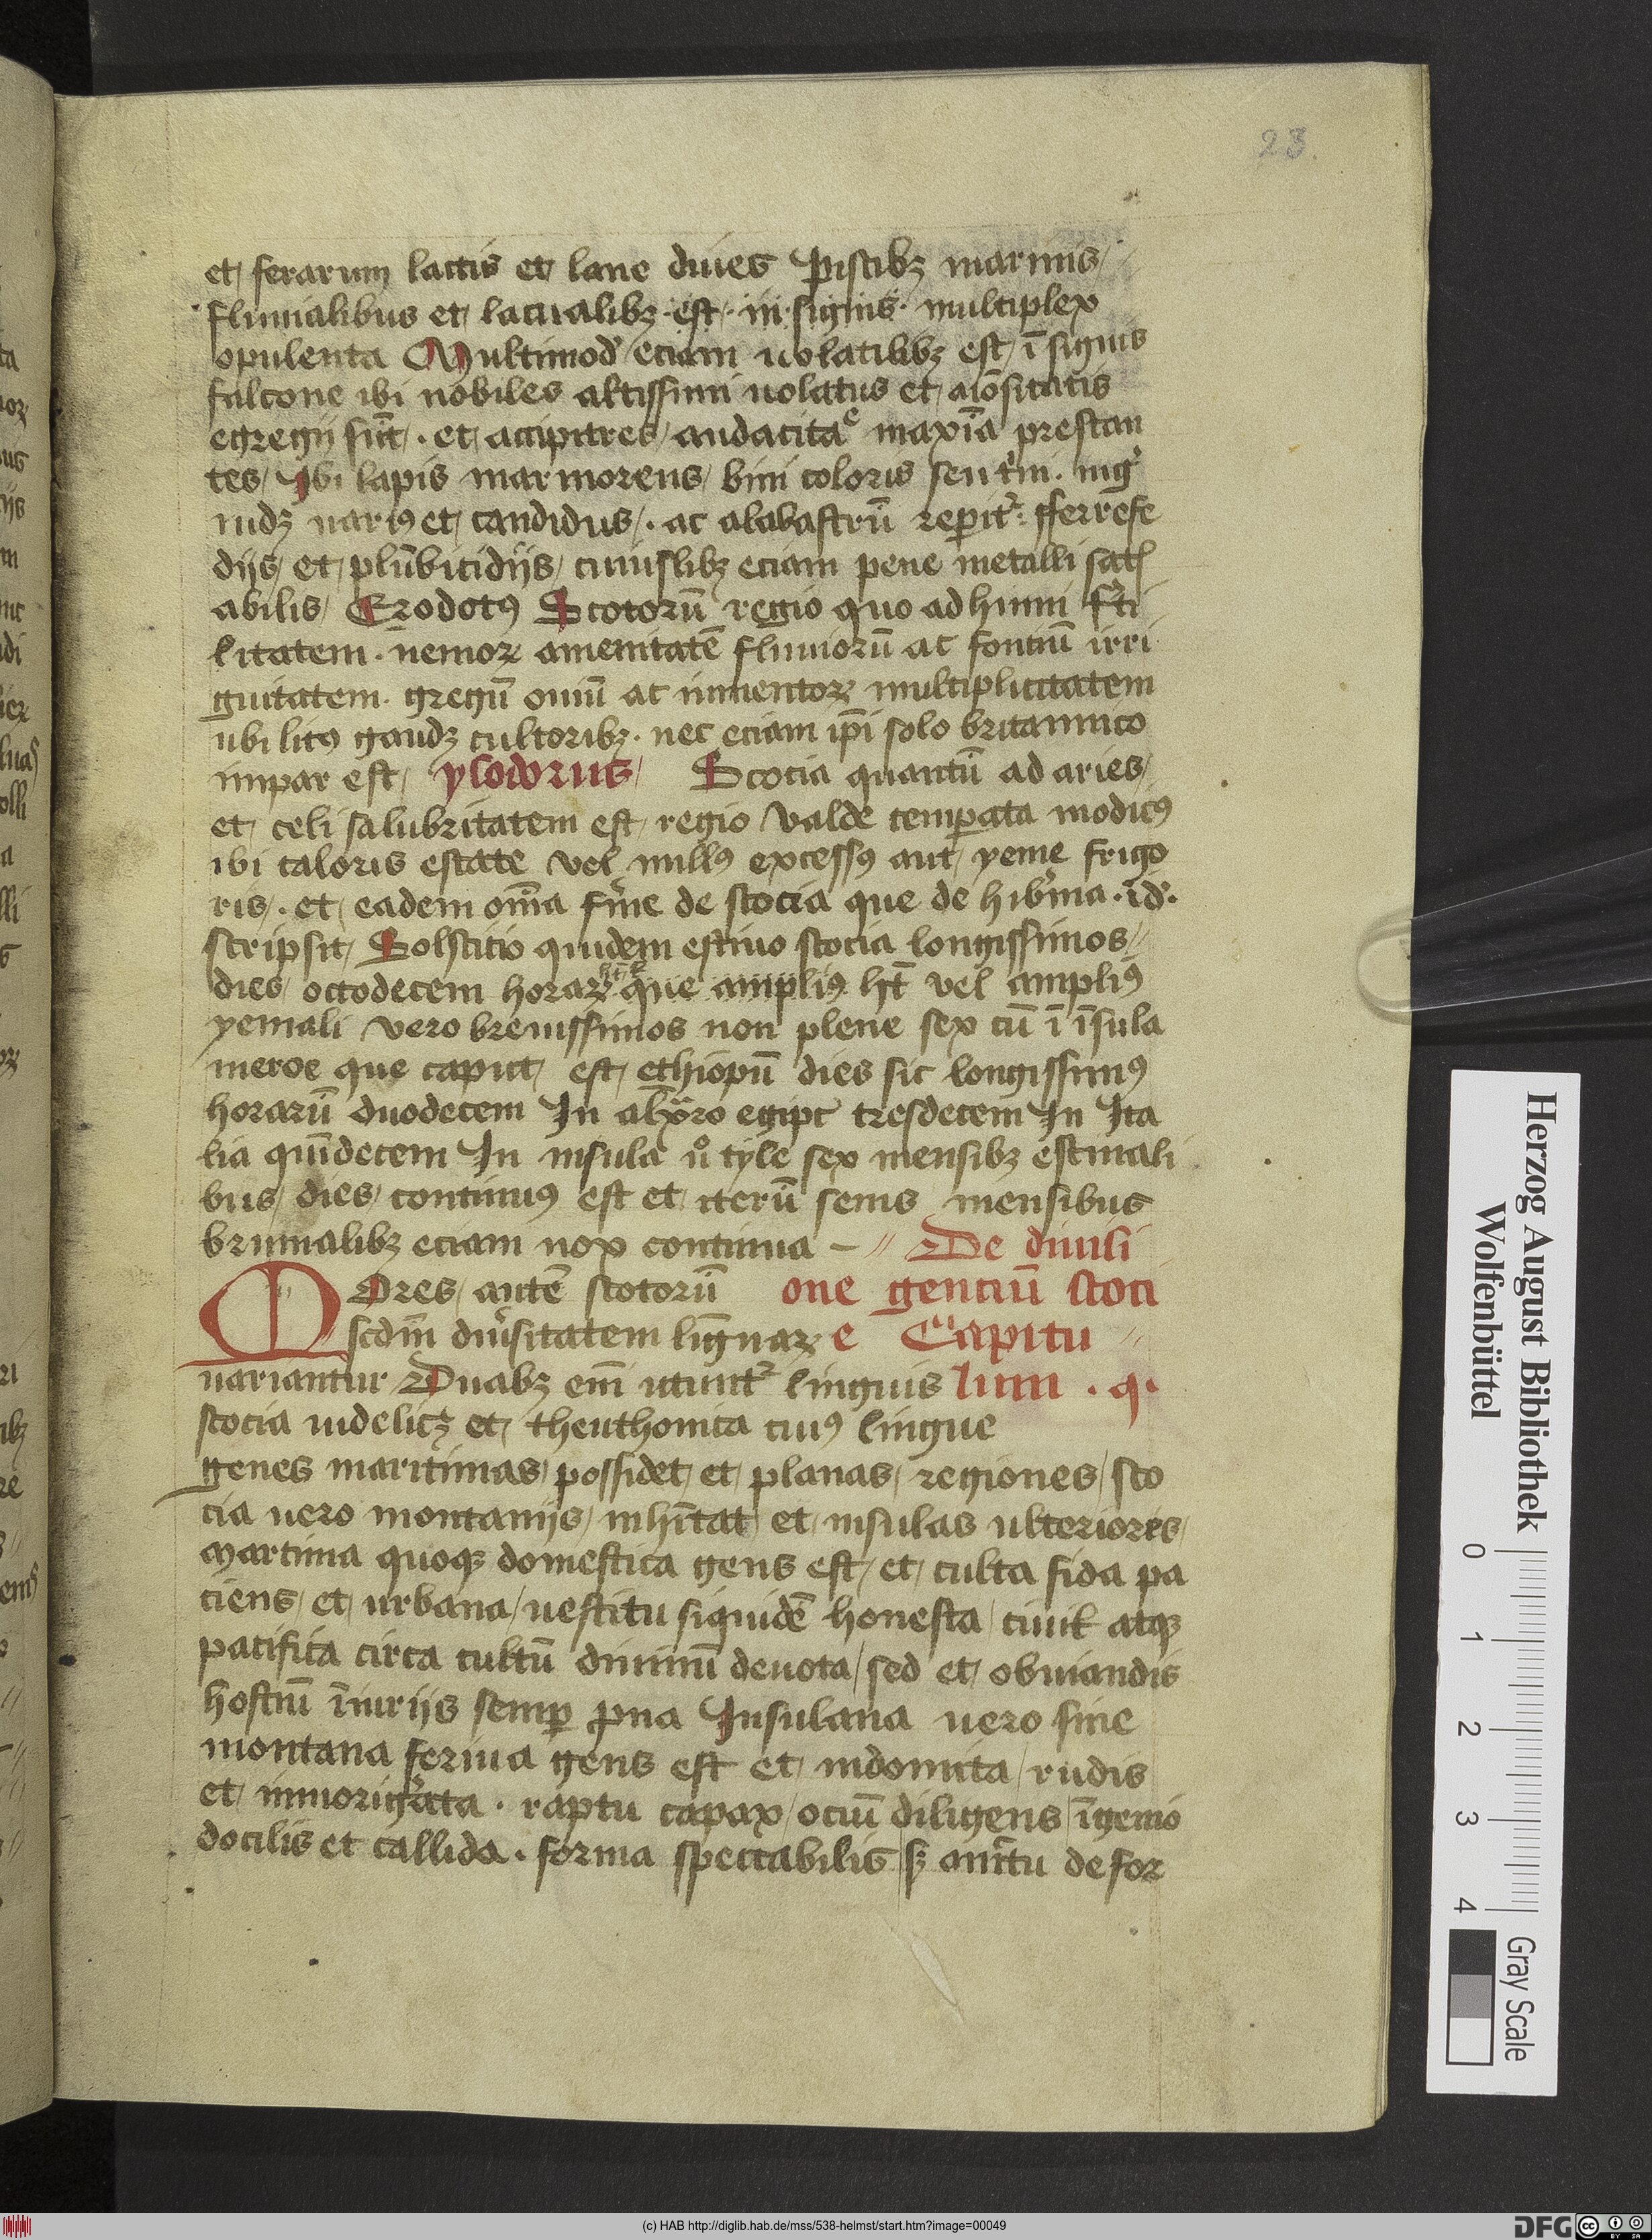 23.
et ferarum lactis et lane diues Piscibꝫ marinis
fluuialibus et lacualibꝫ est in signis multiplex
opulenta Multimod eciam uolatilibꝫ est ī signis
falcone ibi nobiles altissimi uolatus et aīositatis
egregij sūt . et accipitres audacitaͤ maxīa prestan
tes Ibi lapis marmoreus bini coloris seu t'ni . nig'
uidꝫ uariꝰ et candidus . ac alabastrū reperit' . fferrefo
dijs et plūbicidijs cuiuslibꝫ eciam pene metalli sat
abilis Erodotꝰ Scotorū regio quo ad humi f'ti
litatem . nemoꝝ amenitatē fluuiorū ac fontiū irri
guitatem . gregū ouiū ac iumentoꝝ multiplicitatem
ubi litꝰ gaudꝫ cultoribꝫ . nec eciam ip̄i solo britannico
impar est ysodorus Scocia quantū ad aries
et celi salubritatem est regio valde temperata modicꝰ
ibi caloris estate vel nullꝰ excessꝰ aut yeme frigo
ris . et eadem om̄ia f'me de scocia que de hib'nia . id' .
scripsit Solsticio quidem estiuo scocia longissimos
dies octodecem horaꝝ que ampliꝰ ht̄ vel ampliꝰ
yemali vero breuissimos non plene sex cū ī īsula
meroe que caput est ethiopū dies sic longissimꝰ
horarū duodecem In alx̄ro egipt tresdecem In Ita
lia quīdecem In insula ů tyle sex mensibꝫ estiuali
bus dies continuꝰ est et iterū senis mensibus
brumalibꝫ eciam nox continua – De diuisi
Mores autē scotorū one genciū scoci
scdm̄ diu'sitatem linguaꝝ e Capitu
uariantur Duabꝫ em̄ utunt' linguis lum . q .
scocia uidelicꝫ et theuthonica cuiꝰ lingue
genes maritimas possidet et planas regiones sco
cia uero montanijs inhītat et insulas ulteriores
Martima quoqꝫ domestica gens est et culta fida pa
ciens et urbana uestitu siquidē honesta ciuil atqꝫ
pacifica circa cultū diuinū deuota sed et obuiandis
hostiū īiurijs semper prona Insulana uero siue
montana feriua gens est et indomita rudis
et inmorig'ata . raptu capax ociū diligens īgenio
docilis et callida . forma spectabilis sꝫ am̄ctu defor
Herzog August Bibliothek
Wolfenbüttel
0 1 2 3 4
Gray Scale
(c) HAB http://diglib.hab.de/mss/538-helmst/start.htm?image=00049
DFG